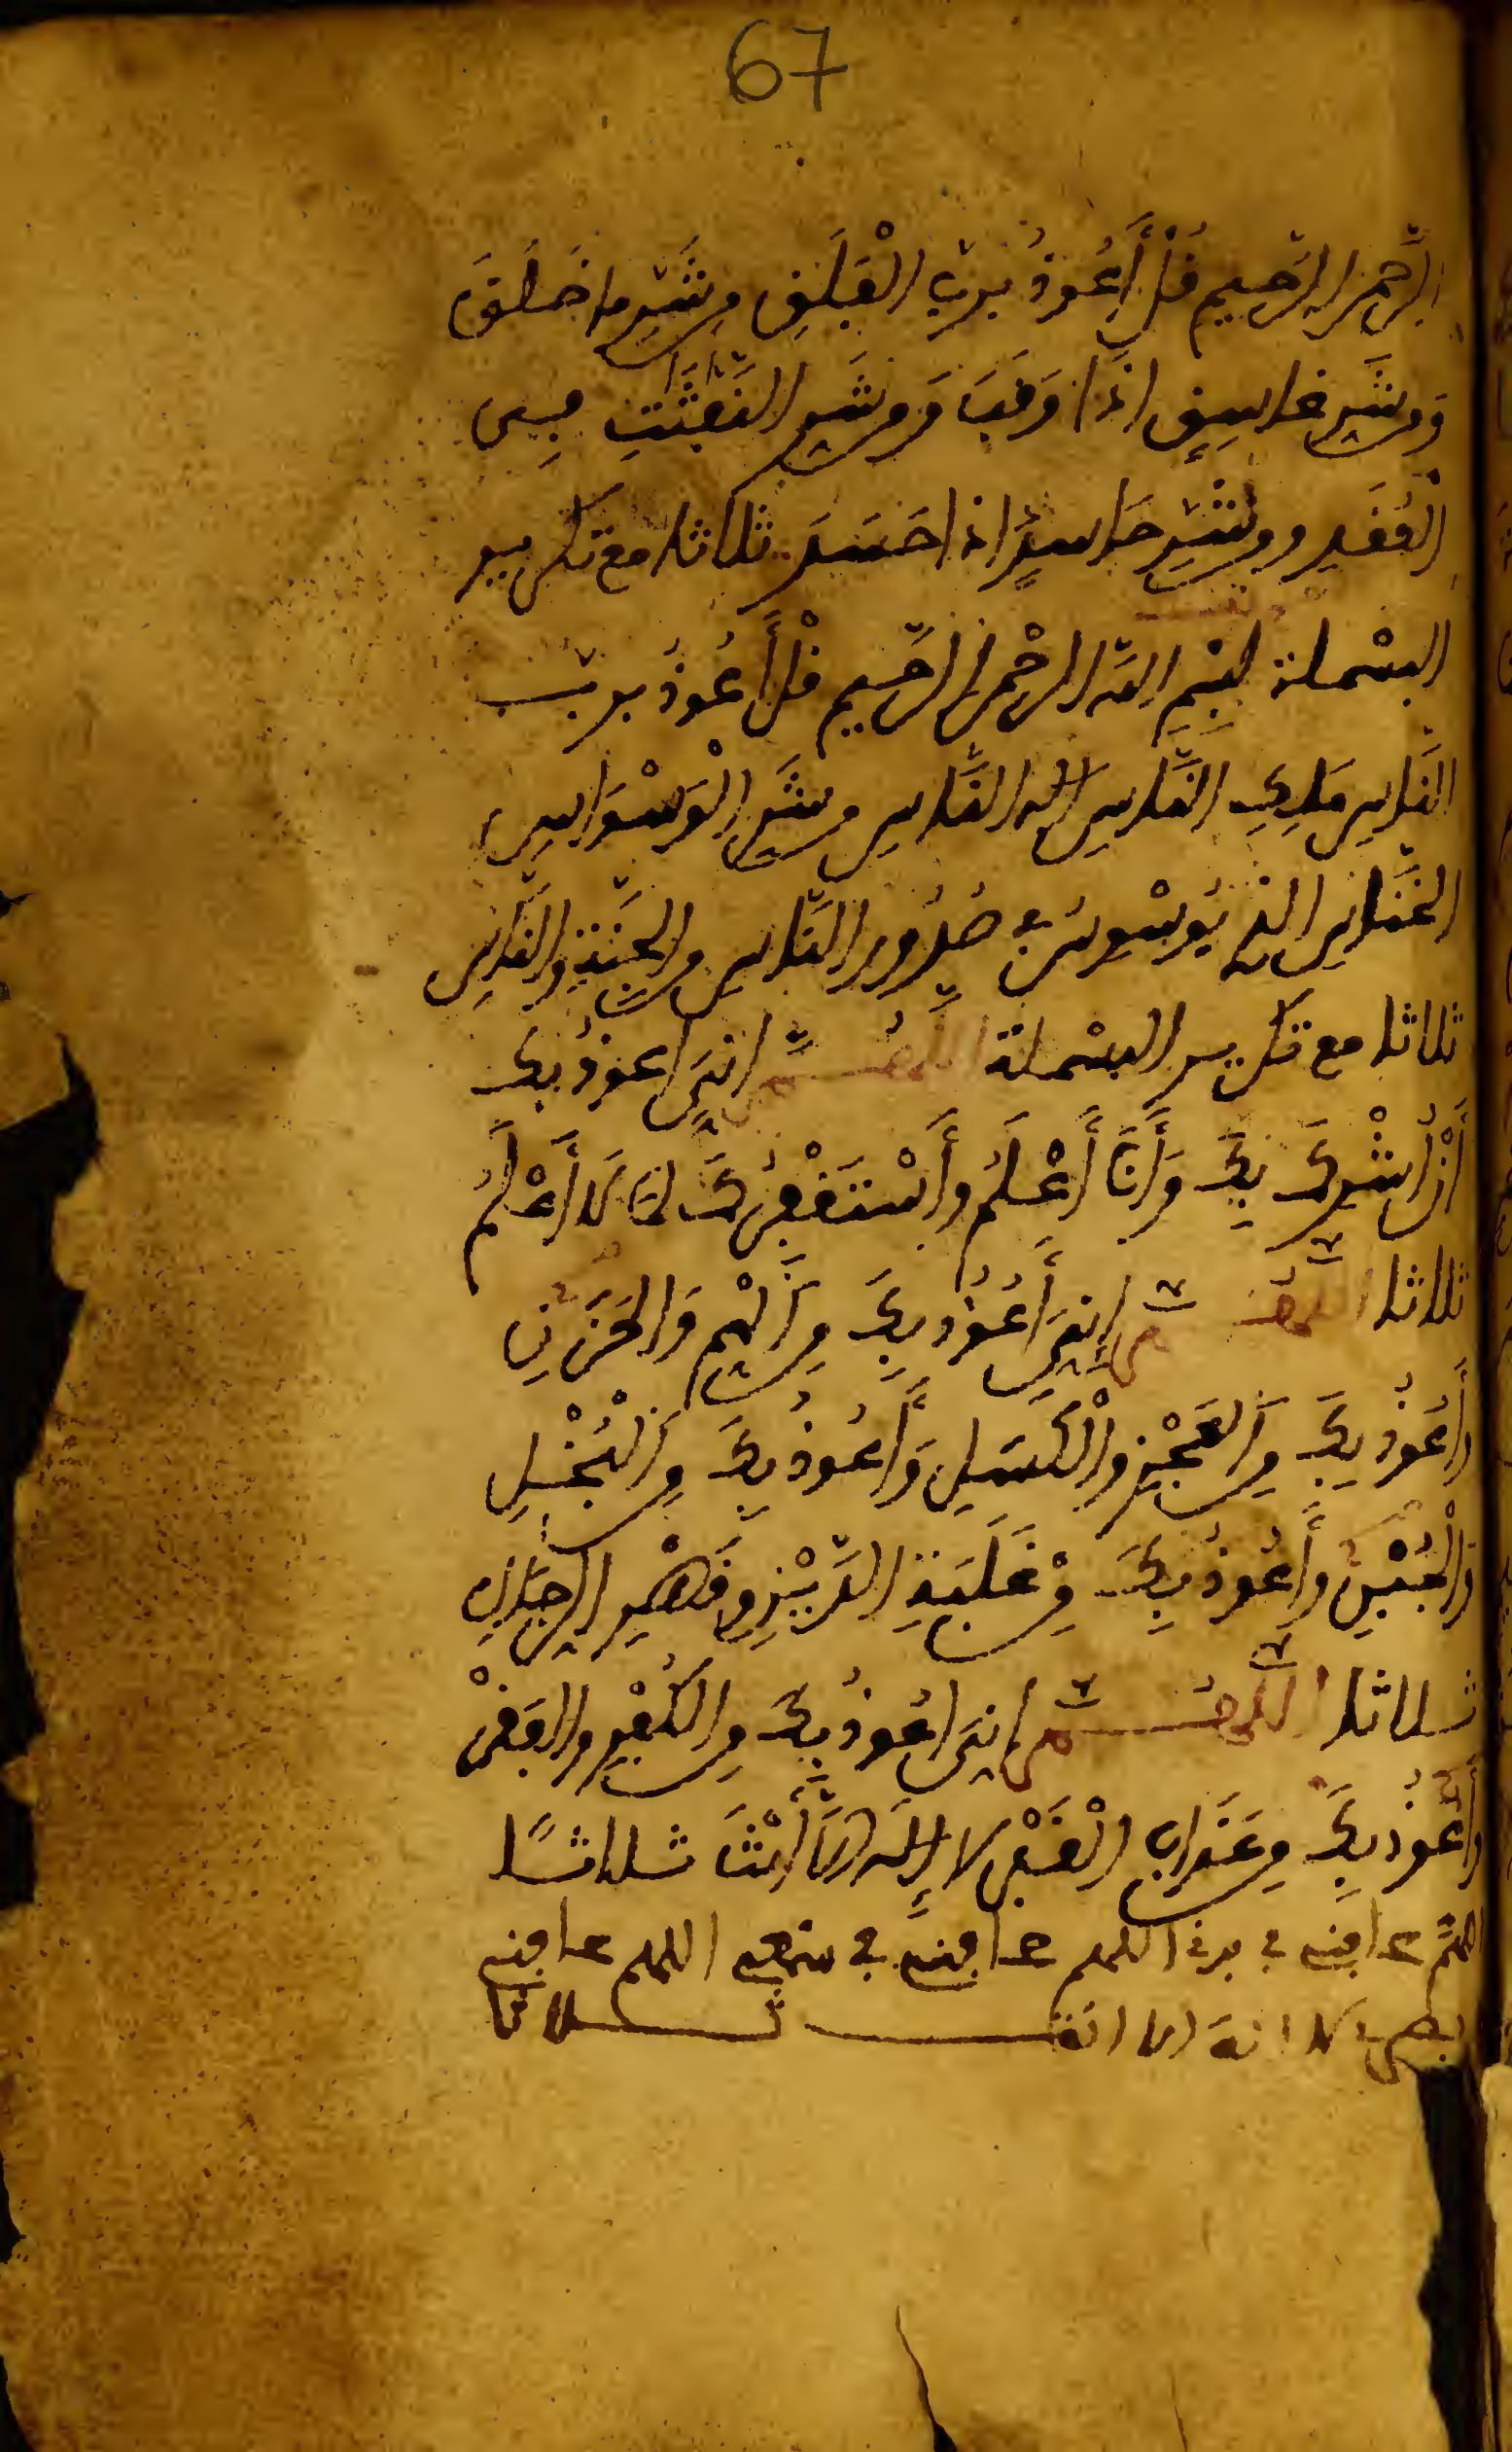 67
الرحمن الرحيم قُلْ أَعُوذُ بِرَبِّ الْفَلَقِ مِن شَرِّ مَا خَلَقَ
وَمِن شَرِّ غَاسِقٍ اِذَا وَقَبَ وَمِن شَرِّ النَّفَّٰثَٰتِ فِي
الْعُقَدِ وَمِن شَرِّ حَاسِدٍ اِذَا حَسَدَ ثلاثا مع تكرير
البسْملة بِسْمِ اللّه الرحْمن الرّحيم قُلْ أَعُوذُ بِرَبِّ
النَّاسِ مَلِكِ النَّاسِ إله النَّاسِ مِن شَرِّ الْوَسْوَاسِ
الْخَنَّاسِ الذِي يُوَسْوِسُ فِي صُدُورِ النَّاسِ مِنَ الْجِنَّةِ وَالنَّاسِ
ثلاثا مع تكرير البسْملة اللَّهُمَّ اِنِّي اَعوذُ بِكَ
أَنْ أُشْرِكَ بِكَ وَأَنَا أَعْلَمُ وَأَسْتَغْفِرُكَ لِمَا لَا أَعْلَمُ
ثلاثا اللَّهُمَّ إِنِّي أَعُوذُ بِكَ مِنَ الْهَمِّ وَالْحَزَنِ
وَأَعُوذُ بِكَ مِنَ الْعَجْزِ وَالْكَسَلِ وَأَعُوذُ بِكَ مِنَ الْبُخْلِ
وَالْجُبْنِ وَأَعُوذُ بِكَ مِنْ غَلَبَةِ الدَّيْنِ وَقَهْرِ الرِّجَالِ
ثلاثا اللَّهُمَّ اِنِّي اَعُوذُ بِكَ مِنَ الْكُفْرِ والْفَقْرِ
وَأَعُوذُ بِكَ مِنْ عَذَابِ الْقَبْرِ لا إِلَه اِلَّا أَنْتَ ثلاثًا
اللهمّ عافني في بدني اللهم عافني في سمعي اللهم عافني
بصري لا اله الا انت ثلاثا